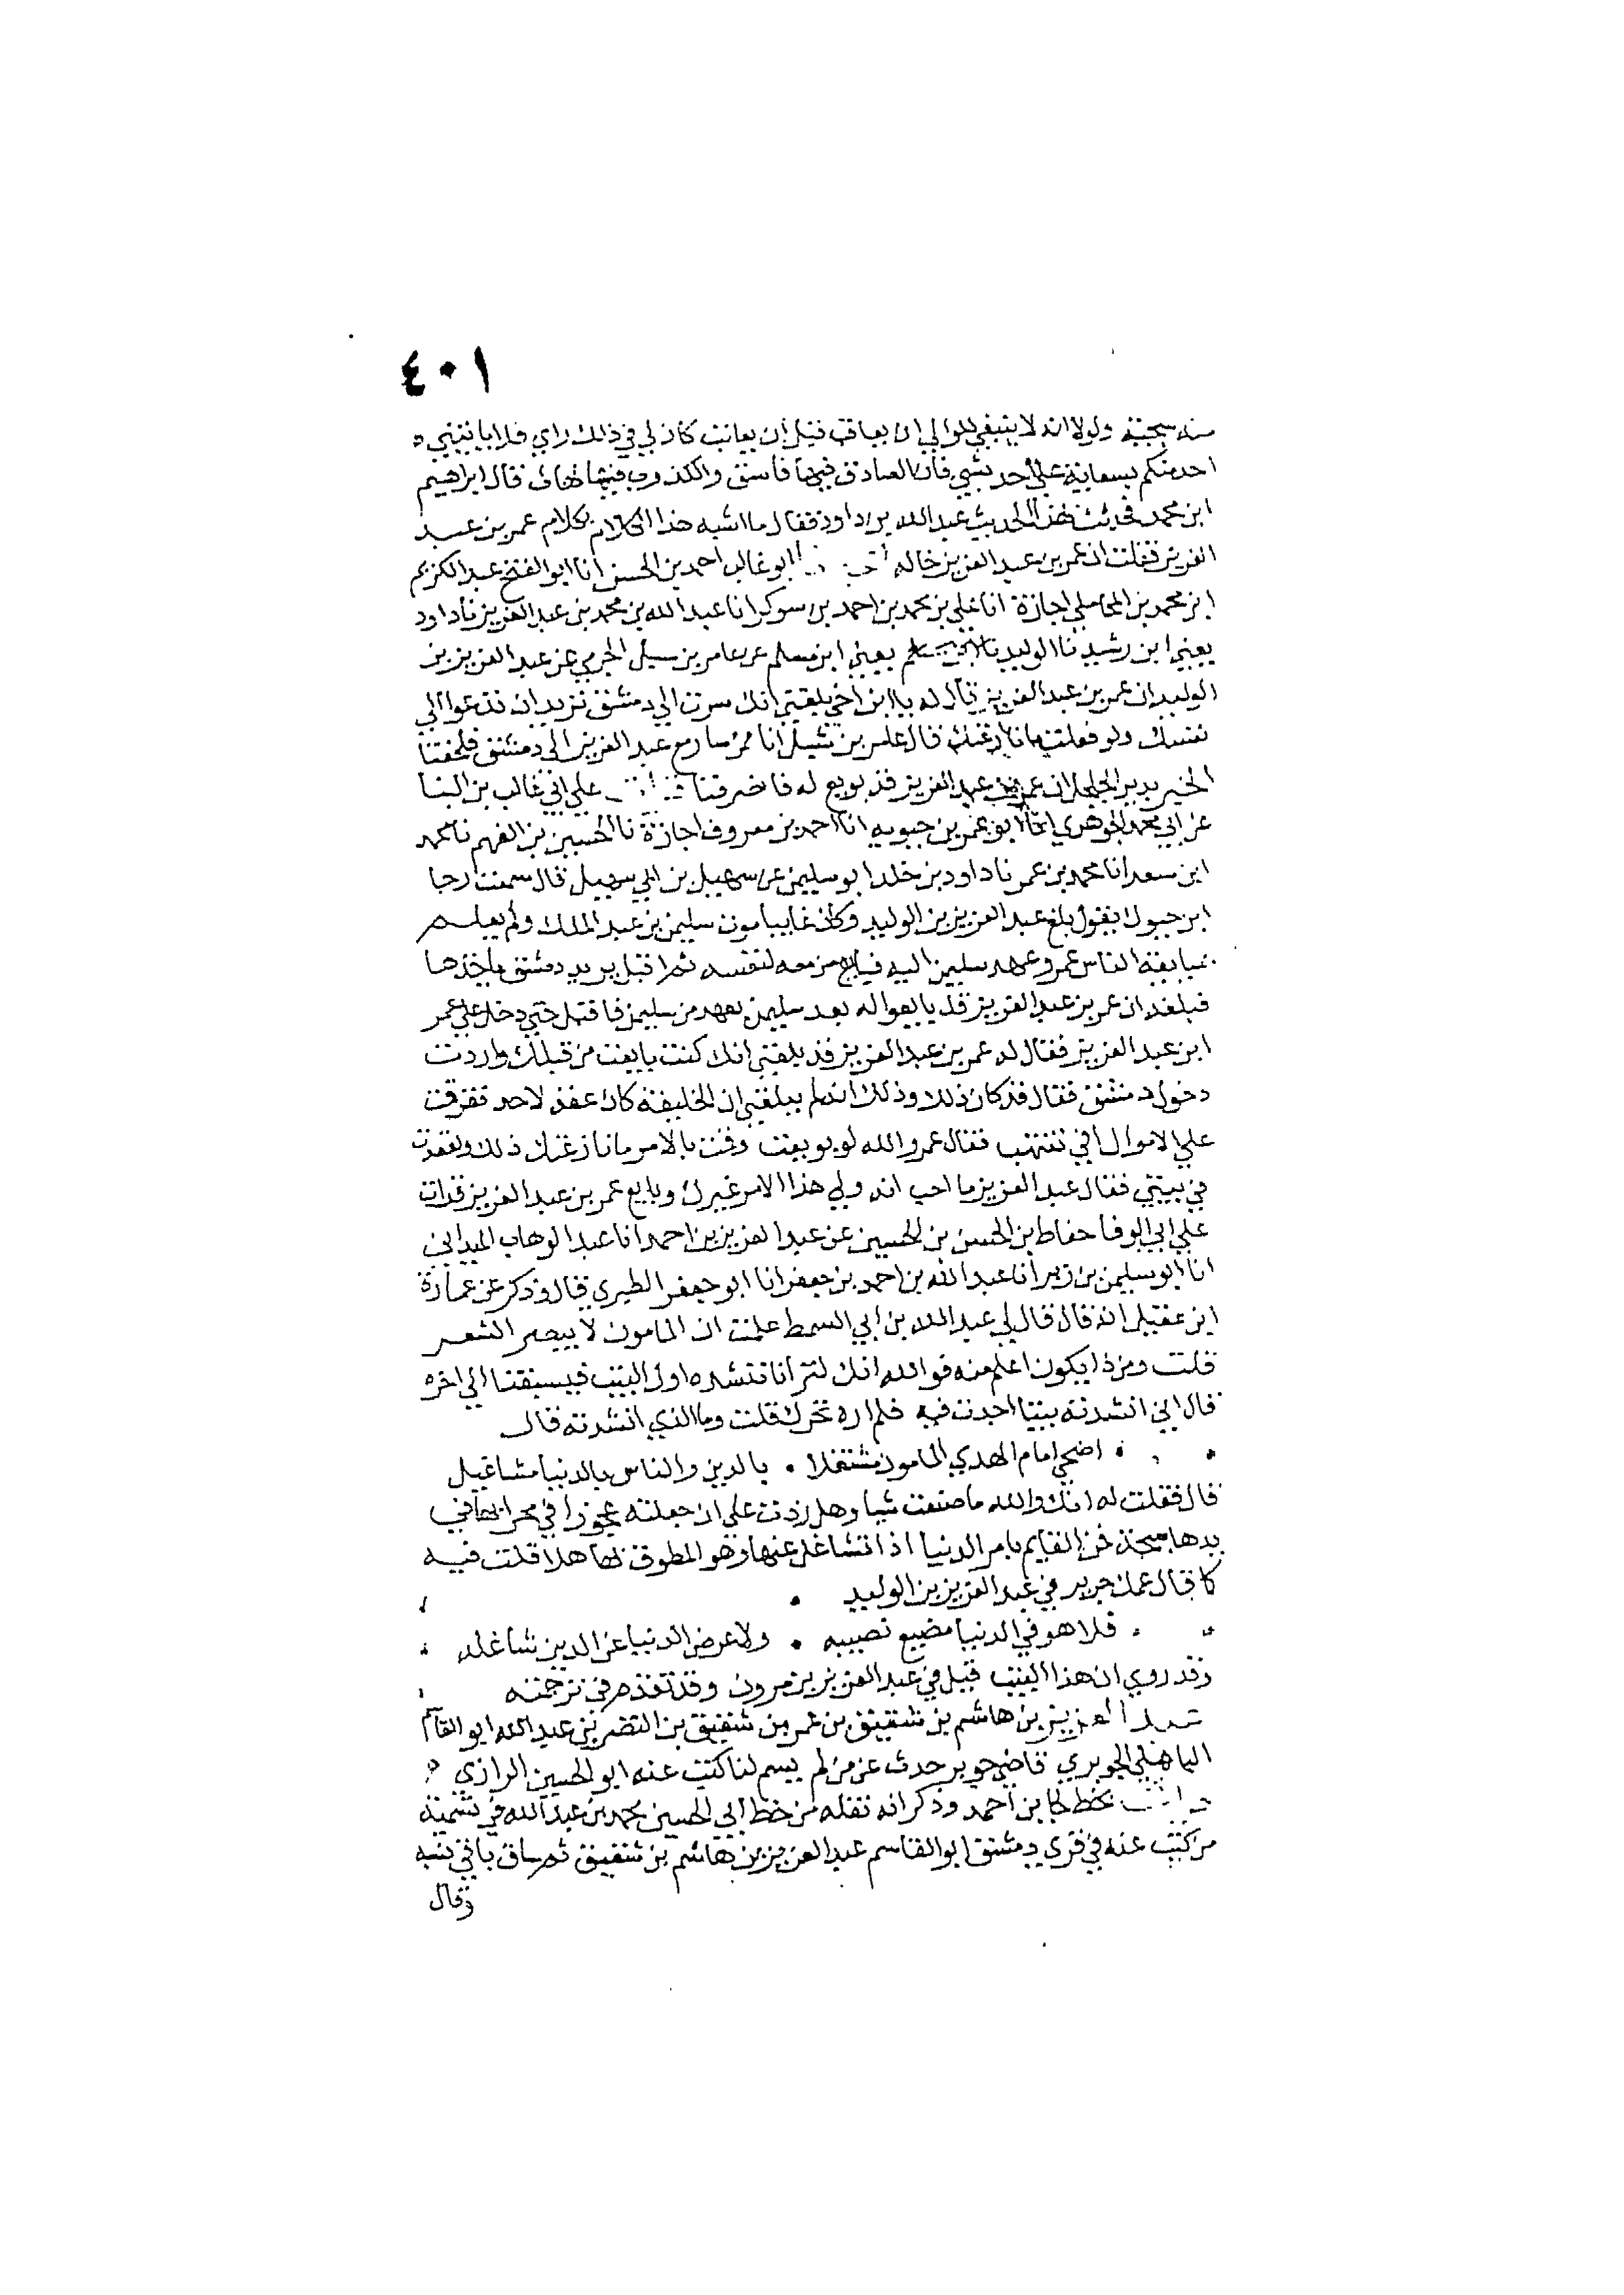 ٤٠١
منه سجيته ولولا انه لا ينبغي للوالي ان يعاقب قبل ان يعاتب كان لي في ذلك راي فلا ياتيني
احد منكم بسعاية على احد بشي فان الصادق فيها فاسق والكذوب فيها بهات قال ابراهيم
ابن محمد فحدثت بهذا الحديث عبد الله بن داود فقال ما اشبه هذا الكلام بكلام عمر بن عبد
العزيز فقلت ان عمر بن عبد العزيز خاله ابو غالب احمد بن الحسن انا ابو الفتح عبد الكريم
ابن محمد بن المحاملي اجازة انا علي بن محمد بن احمد بن سوكر انا عبد الله بن محمد بن عبد العزيز نا داود
يعني ابن رشيد نا الوليد يعني ابن مسلم عن عامر بن سبل الجرمي عن عبد العزيز بن
الوليد ان عمر بن عبد العزيز قال له يا ابن اخي بلغني انك سرت الي دمشق تريد ان تدعوا الي
نفسك ولو فعلت ما نازعتك قال عامر بن شبل انا ممن سار مع عبد العزيز الي دمشق فلحقنا
الخبر بدير الجلجل ان عمر بن عبد العزيز قد بويع له فانصرفنا علي ابي غالب بن البنا
عن ابي محمد الجوهري انا ابو عمر بن حيويه انا احمد بن معروف اجازة نا الحسين بن الفهم نا محمد
ابن سعد انا محمد بن عمر نا داود بن خلد ابو سليمن عن سهيل بن ابي سهيل قال سمعت رجا
ابن حيوة يقول بلغ عبد العزيز بن الوليد وكان غايبا موت سليمن بن عبد الملك ولم يعلم
بمبايعة الناس عمر وعهد سليمن اليه فبايع من معه لنفسه ثم اقبل يريد دمشق ياخذها
فبلغه ان عمر بن عبد العزيز قد بايعوا له بعد سليمن بعهد من سليمن فاقبل حتي دخل علي عمر
ابن عبد العزيز فقال له عمر بن عبد العزيز قد بلغني انك كنت بايعت من قبلك واردت
دخول دمشق فقال قد كان ذلك وذلك انه لم يبلغني ان الخليفة كان عقد لاحد ففرقت
علي الاموال ان تنتهب فقال عمر والله لو بويعت وقمت بالامر ما نازعتك ذلك ولقعدت
في بيتي فقال عبد العزيز ما احب انه ولي هذا الامر غيرك وبايع عمر بن عبد العزيز قرات
علي ابي الوفا حفاظ بن الحسن بن الحسين عن عبد العزيز بن احمد انا عبد الوهاب الميداني
انا ابو سليمن بن زبر انا عبد الله بن احمد بن جعفر انا ابو جعفر الطبري قال وذكر عن عمارة
ابن عقيل انه قال قال لي عبد الله بن ابي السمط علمت ان المامون لا يبصر الشعر
قلت ومن ذا يكون اعلم منه فوالله انك لترانا ننشده اول البيت فيسبقنا الي اخره
قال اني انشدته بيتا اجدت فيه فلم اره تحرك قلت وما الذي انشدته قال
اضحي امام الهدي المامون مشتغلا بالدين والناس بالدنيا مشاغيل
قال فقلت له انك والله ما صنعت شيا وهل زدت علي ان جعلته عجوزا في محرابها في
يدها سبحة فمن القايم بامر الدنيا اذا تشاغل عنها وهو المطوق بها هلا قلت فيه
كما قال عمك جرير في عبد العزيز بن الوليد
فلا هو في الدنيا مضيع نصيبه ولا عرض الدنيا عن الدين شاغله
وقد روي ان هذا البيت قيل في عبد العزيز بن مرون وقد تقدم في ترجمته
عبد العزيز بن هاشم بن شقيق بن عمر بن شقيق بن النضر بن عبد الله ابو القاسم
الباهلي الجوبري قاضي جوبر حدث عن من لم يسم لنا كتب عنه ابو الحسين الرازي
بخط نجا بن احمد وذكر انه نقله من خط ابي الحسين محمد بن عبد الله في تسمية
من كتب عنه في قري دمشق ابو القاسم عبد العزيز بن هاشم بن شقيق ثم ساق باقي نسبه
وقال